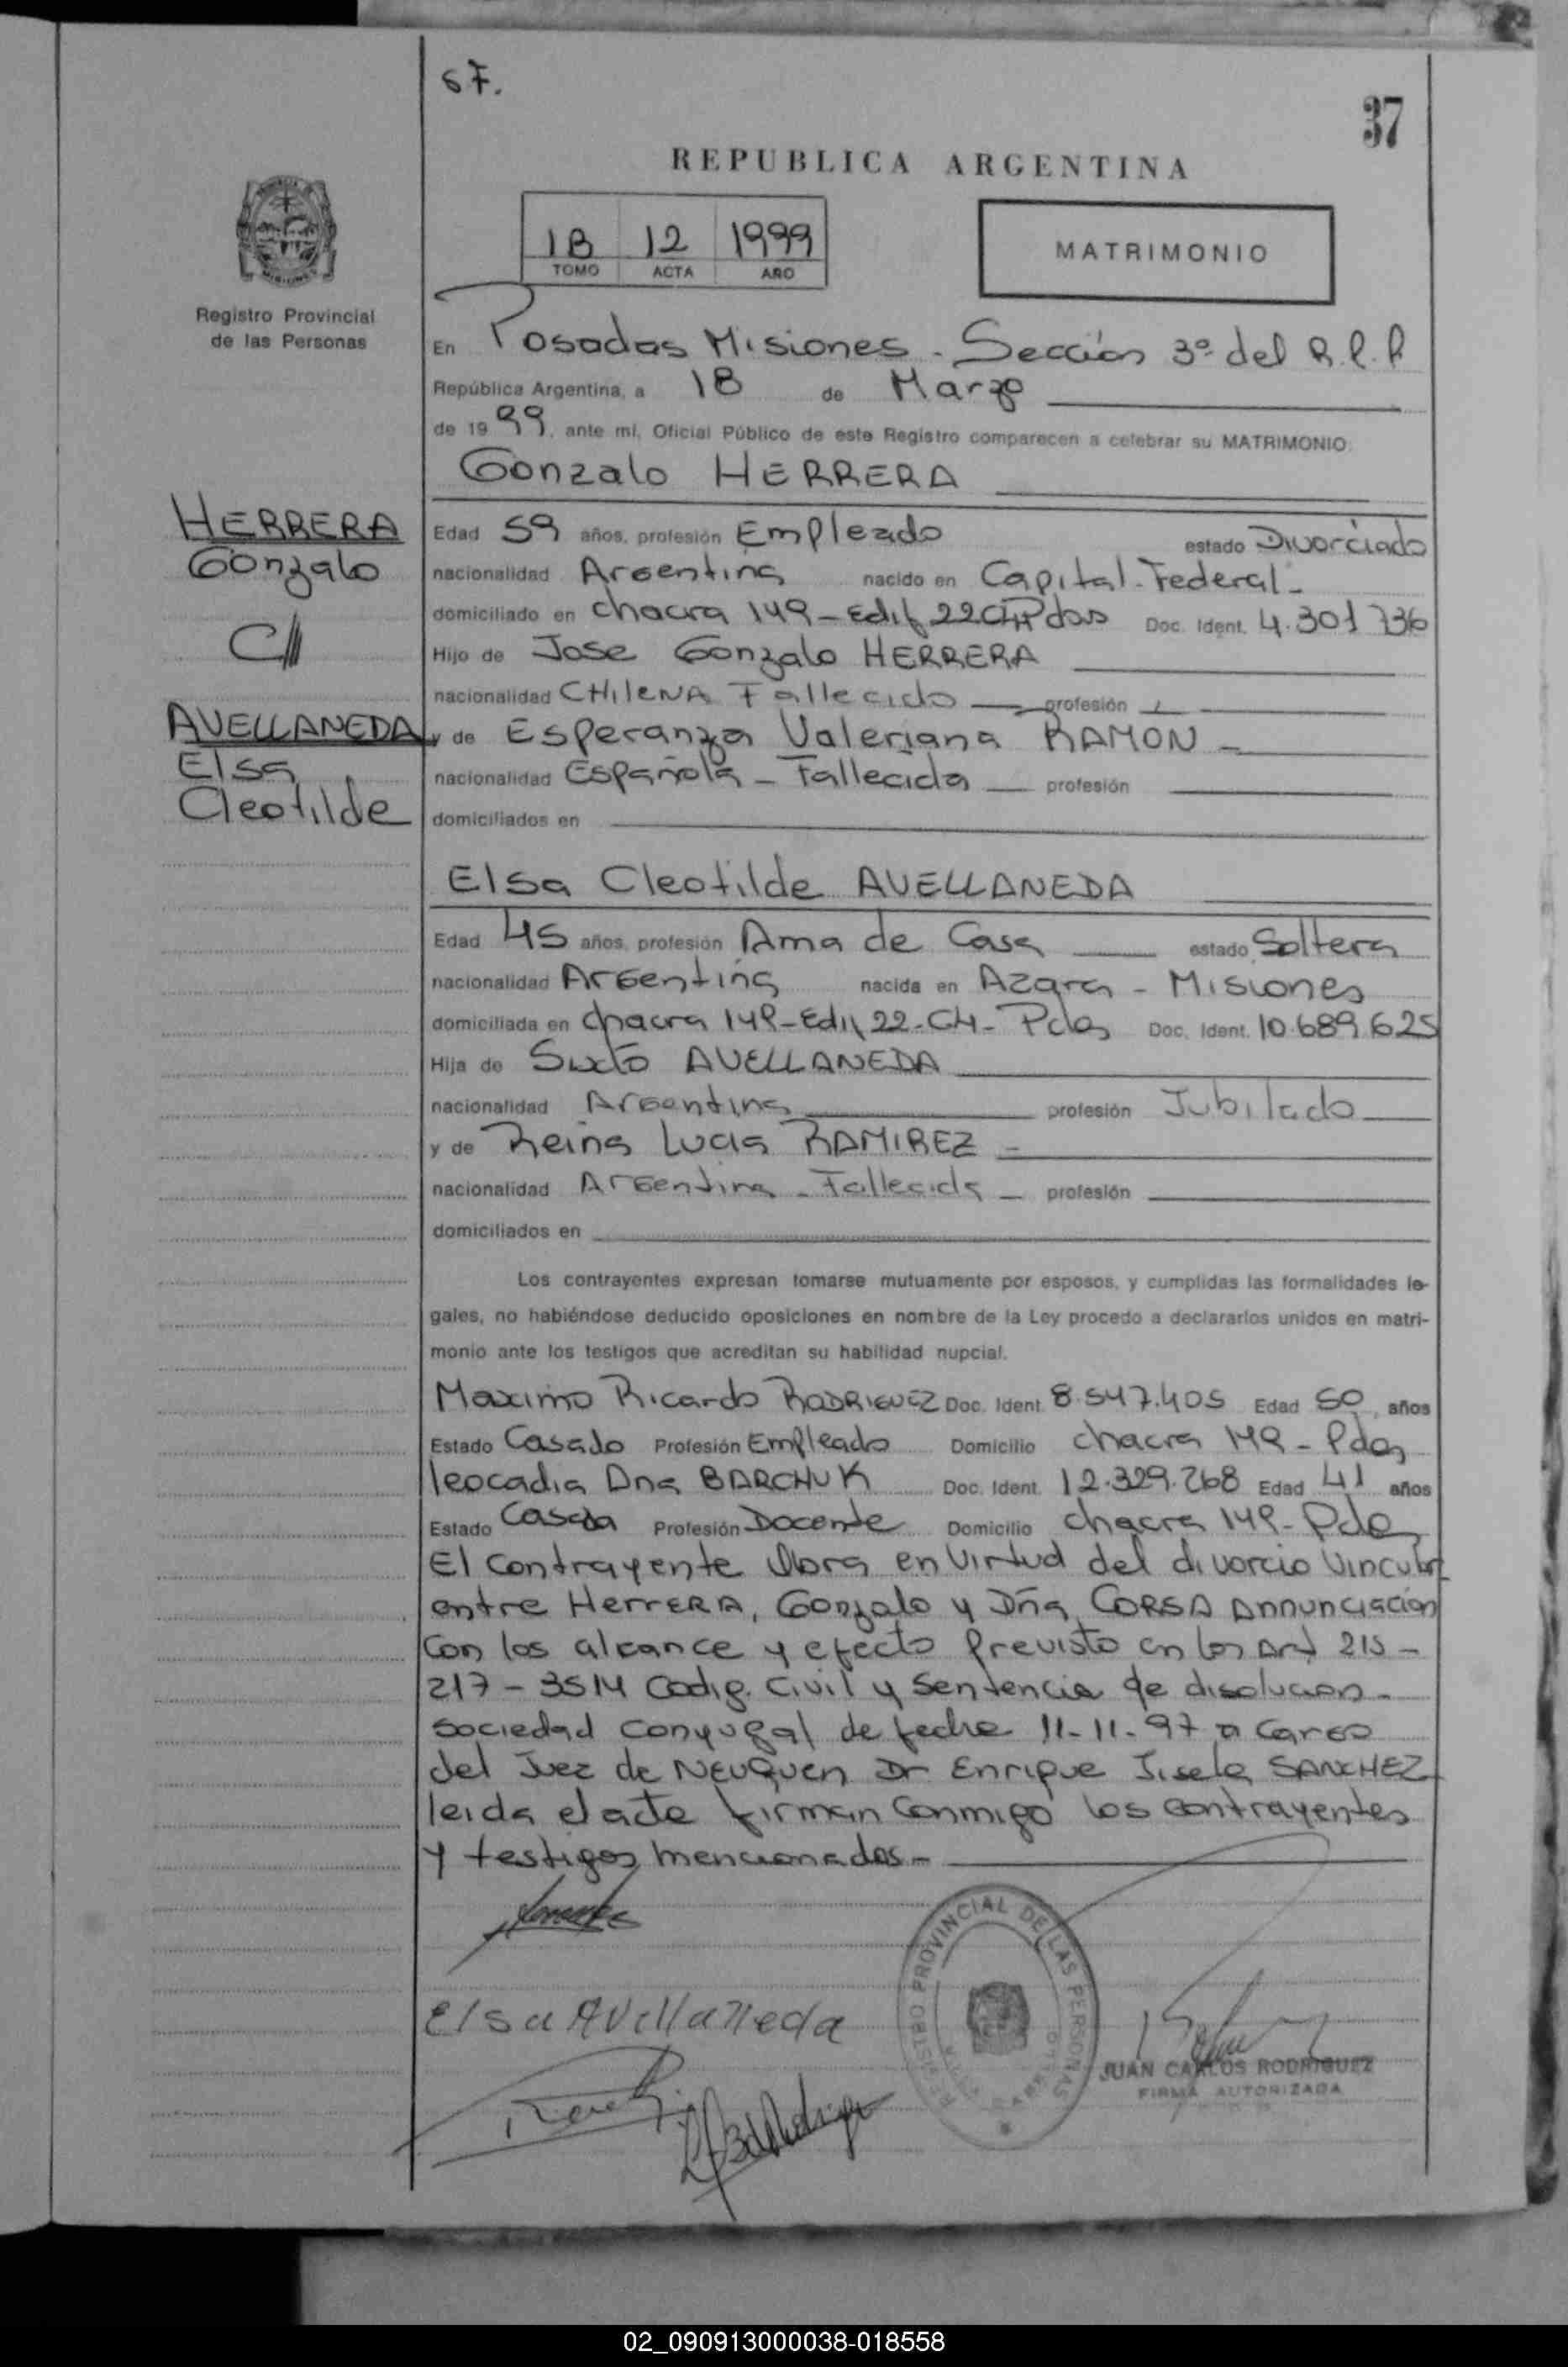 57.
37
REPUBLICA ARGENTINA
1B 12 1999
TOMO ACTA AÑO
MATRIMONIO
Registro Provincial
de las Personas
En Posadas Misiones - Sección 3º del R.P.P
República Argentina, a 18 de Marzo
de 1999, ante mí, Oficial Público de este Registro comparecen a celebrar su MATRIMONIO:
Gonzalo HERRERA
HERRERA
Gonzalo
C//
AVELLANEDA
Elsa
Cleotilde
Edad 59 años, profesión Empleado estado Divorciado
nacionalidad Argentina nacido en Capital-Federal-
domiciliado en chacra 149-Edif 22 CH Pdas Doc. Ident. 4.301736
Hijo de Jose Gonzalo HERRERA
nacionalidad CHILENA Fallecido profesión
y de Esperanza Valeriana RAMON -
nacionalidad Española - Fallecida profesión
domiciliados en
Elsa Cleotilde AVELLANEDA
Edad 45 años, profesión Ama de Casa estado Soltera
nacionalidad Argentina nacida en Azara - Misiones
domiciliada en chacra 149-Edif 22-CH- Pdas Doc. Ident. 10.689.625
Hija de Sixto AVELLANEDA
nacionalidad Argentina profesión Jubilado
y de Reina Lucia RAMIREZ -
nacionalidad Argentina - Fallecida - profesión
domiciliados en
Los contrayentes expresan tomarse mutuamente por esposos, y cumplidas las formalidades le-
gales, no habiéndose deducido oposiciones en nombre de la Ley procedo a declararlos unidos en matri-
monio ante los testigos que acreditan su habilidad nupcial.
Maximo Ricardo RODRIGUEZ Doc. Ident. 8.547.405 Edad 50, años
Estado Casado Profesión Empleado Domicilio chacra 149 - Pdas
leocadia Ana BARCHUK Doc. Ident. 12.329.268 Edad 41 años
Estado Casada Profesión Docente Domicilio chacra 149- Pdas
El contrayente obra en virtud del divorcio Vincular
entre HerrERA, Gonzalo y Dña CORSA Annunciacion
con los alcance y efecto Previsto en los Art 215 -
217 - 3514 Codig. Civil y Sentencia de disolucion -
sociedad conyugal de fecha 11-11-97 a cargo
del Juez de NEUQuen Dr Enrique SANCHEZ
leida el acta firman conmigo los contrayentes
y testigos mencionados -
Elsa Avellaneda
REGISTRO PROVINCIAL DE LAS PERSONAS
JUAN CARLOS RODRIGUEZ
FIRMA AUTORIZADA
02_090913000038-018558